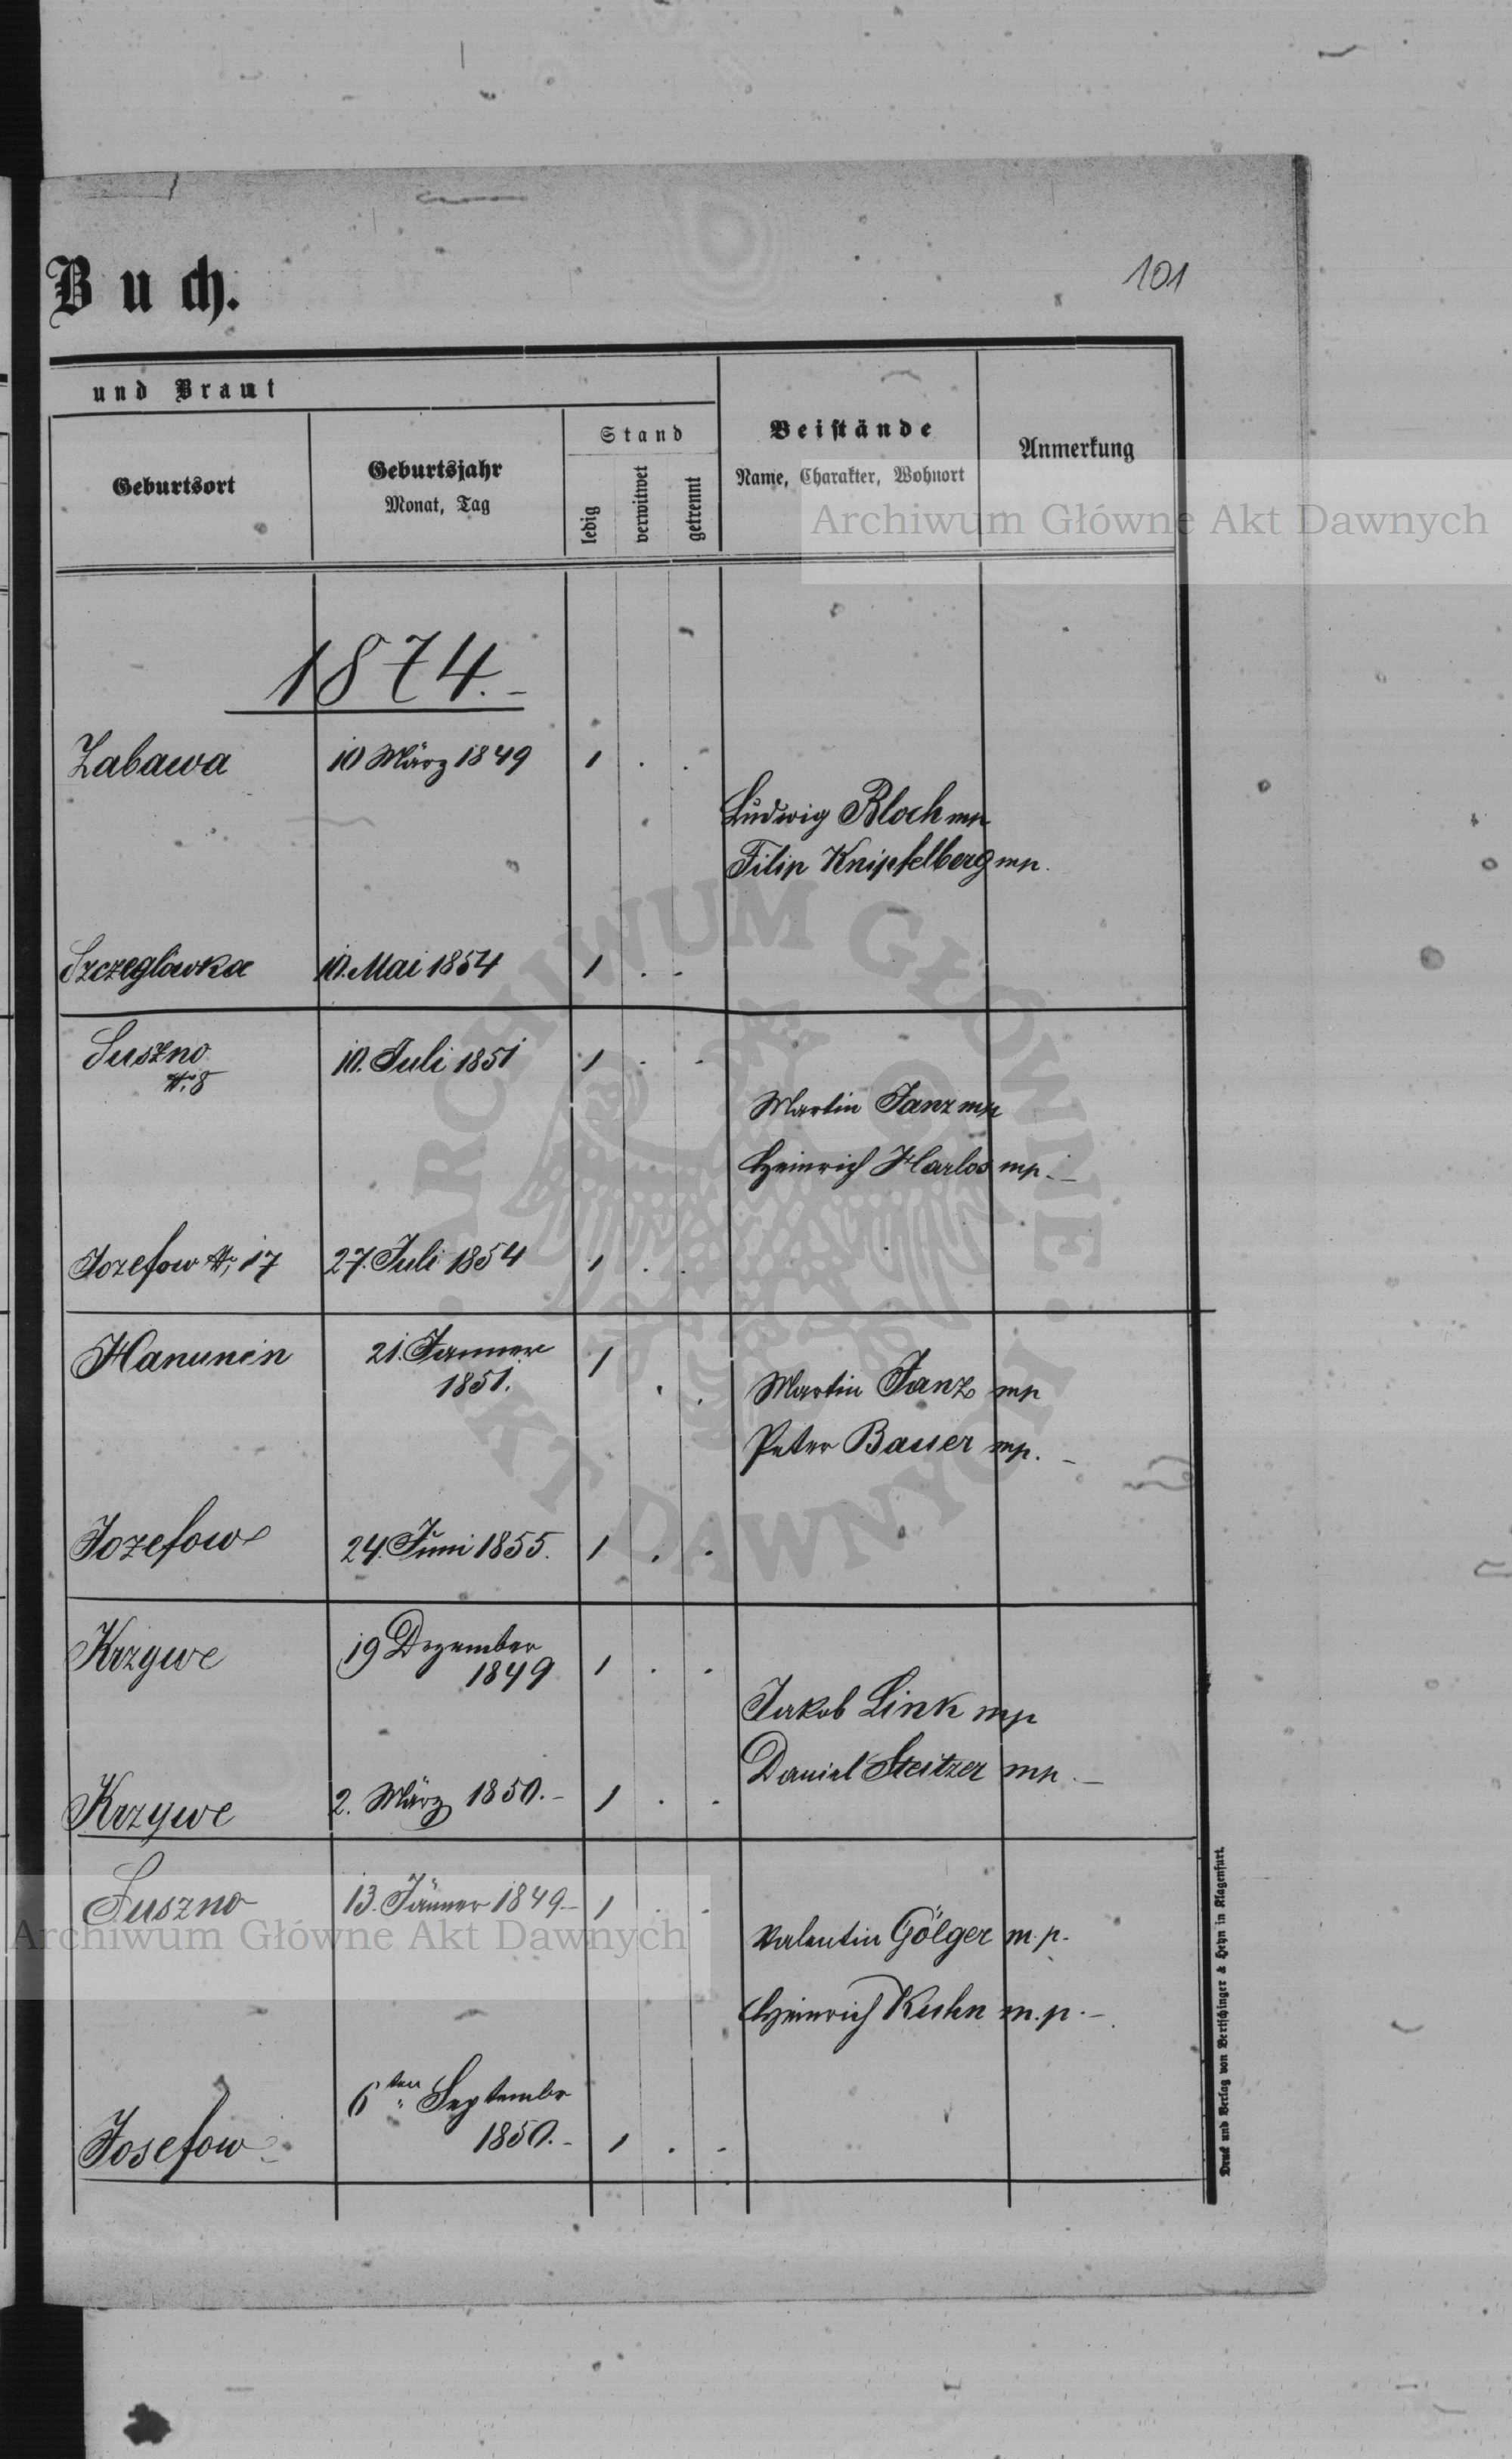 101
Buch.
und Braut
Geburtsort
Geburtsjahr
Monat, Tag
Stand
ledig
verwitwet
getrennt
Beistände
Name, Charakter, Wohnort
Anmerkung
Archiwum Główne Akt Dawnych
1874.-
Zabawa 10 März 1849 1 . .
Ludwig Bloch mp
Filip Knipfelberg mp.
Szczeglówka 10. Mai 1854 1 . .
Suszno 10. Juli 1851 1 . .
№ 8
Martin Janz mp
Heinrich Harlos mp.-
Jozefow № 17 27. Juli 1854 1 . .
Hanunin 21. Janner 1 . .
1851.
Martin Janz mp
Peter Bauer mp. -
Jozefow 24. Juni 1855. 1 . .
Krzywe 19 Dezember 1 . .
1849
Jakob Link mp
Daniel Steitzer mp.-
Krzywe 2. März 1850.- 1 . .
Suszno 13. Jänner 1849.- 1 . .
Valentin Gölger m.p.
Heinrich Kuhn m.p.-
6ten Septembr
Josefow 1850.- 1 . .
ARCHIWUM GŁÓWNE
AKT DAWNYCH
Archiwum Główne Akt Dawnych
Druck und Verlag von Bertschinger & Heyn in Klagenfurt.